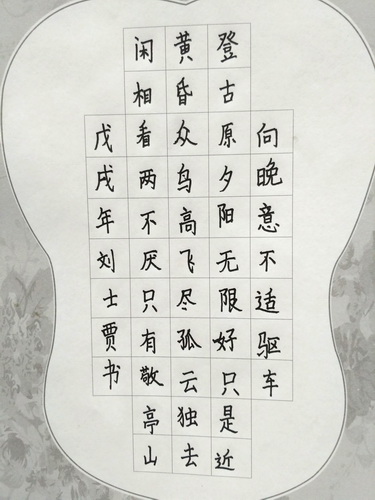 向晚意不适驱车
登古原夕阳无限好只是近
黄昏众鸟高飞尽孤云独去
闲相看两不厌只有敬亭山
戊戌年刘士贾书